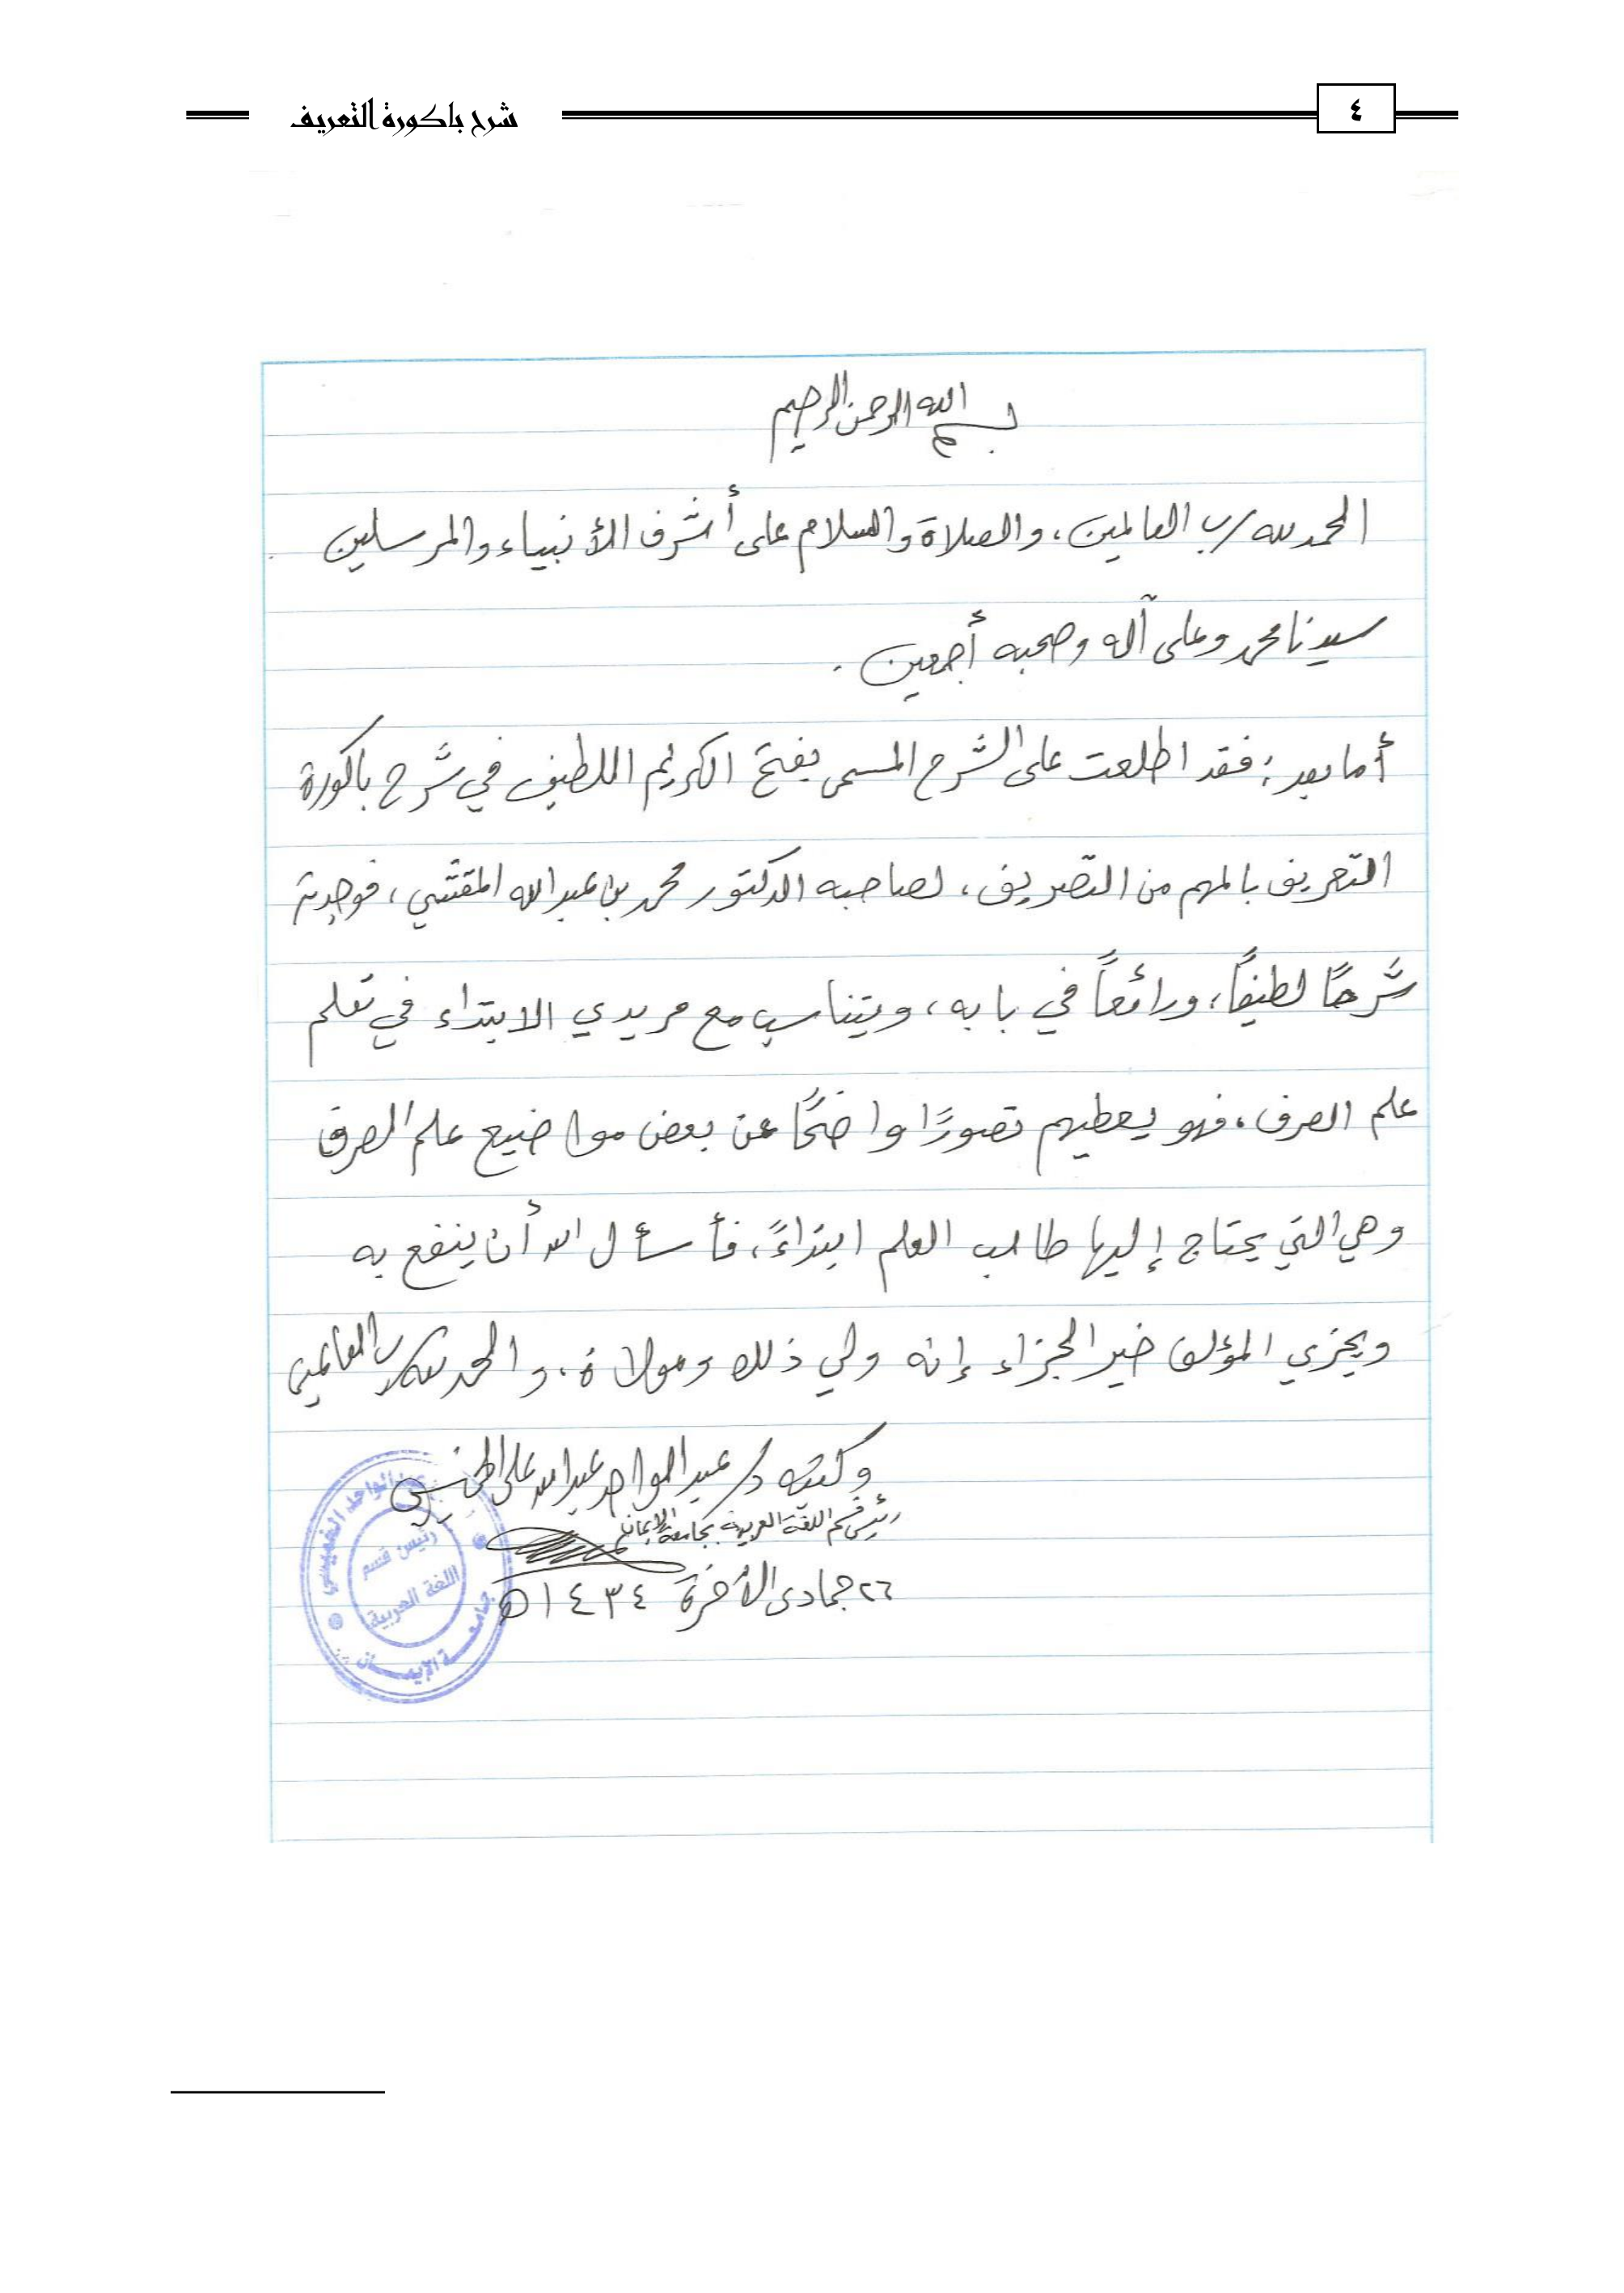 شرح باكورة التعريف
٤
بسم الله الرحمن الرحيم
الحمد لله رب العالمين، والصلاة والسلام على أشرف الأنبياء والمرسلين
سيدنا محمد وعلى آله وصحبه أجمعين.
أما بعد: فقد اطلعت على الشرح المسمى بفتح الكريم اللطيف في شرح باكورة
التعريف بالمهم من التصريف، لصاحبه الدكتور محمد بن عبدالله المقشي، فوجدته
شرحًا لطيفًا، ورائعاً في بابه، ويتناسب مع مريدي الابتداء في تعلم
علم الصرف، فهو يعطيهم تصورًا واضحًا عن بعض مواضيع علم الصرف
وهي التي يحتاج إليها طالب العلم ابتداءً، فأسأل الله أن ينفع به
ويجزي المؤلف خير الجزاء إنه ولي ذلك ومولاه، والحمد لله رب العالمين
وكتبه د/ عبدالواحد عبدالله علي الخميسي
رئيس قسم اللغة العربية بجامعة الإيمان
٢٦ جمادى الآخرة ١٤٣٤ه
عبدالواحد الخميسي
رئيس قسم
اللغة العربية
جامعة الإيمان